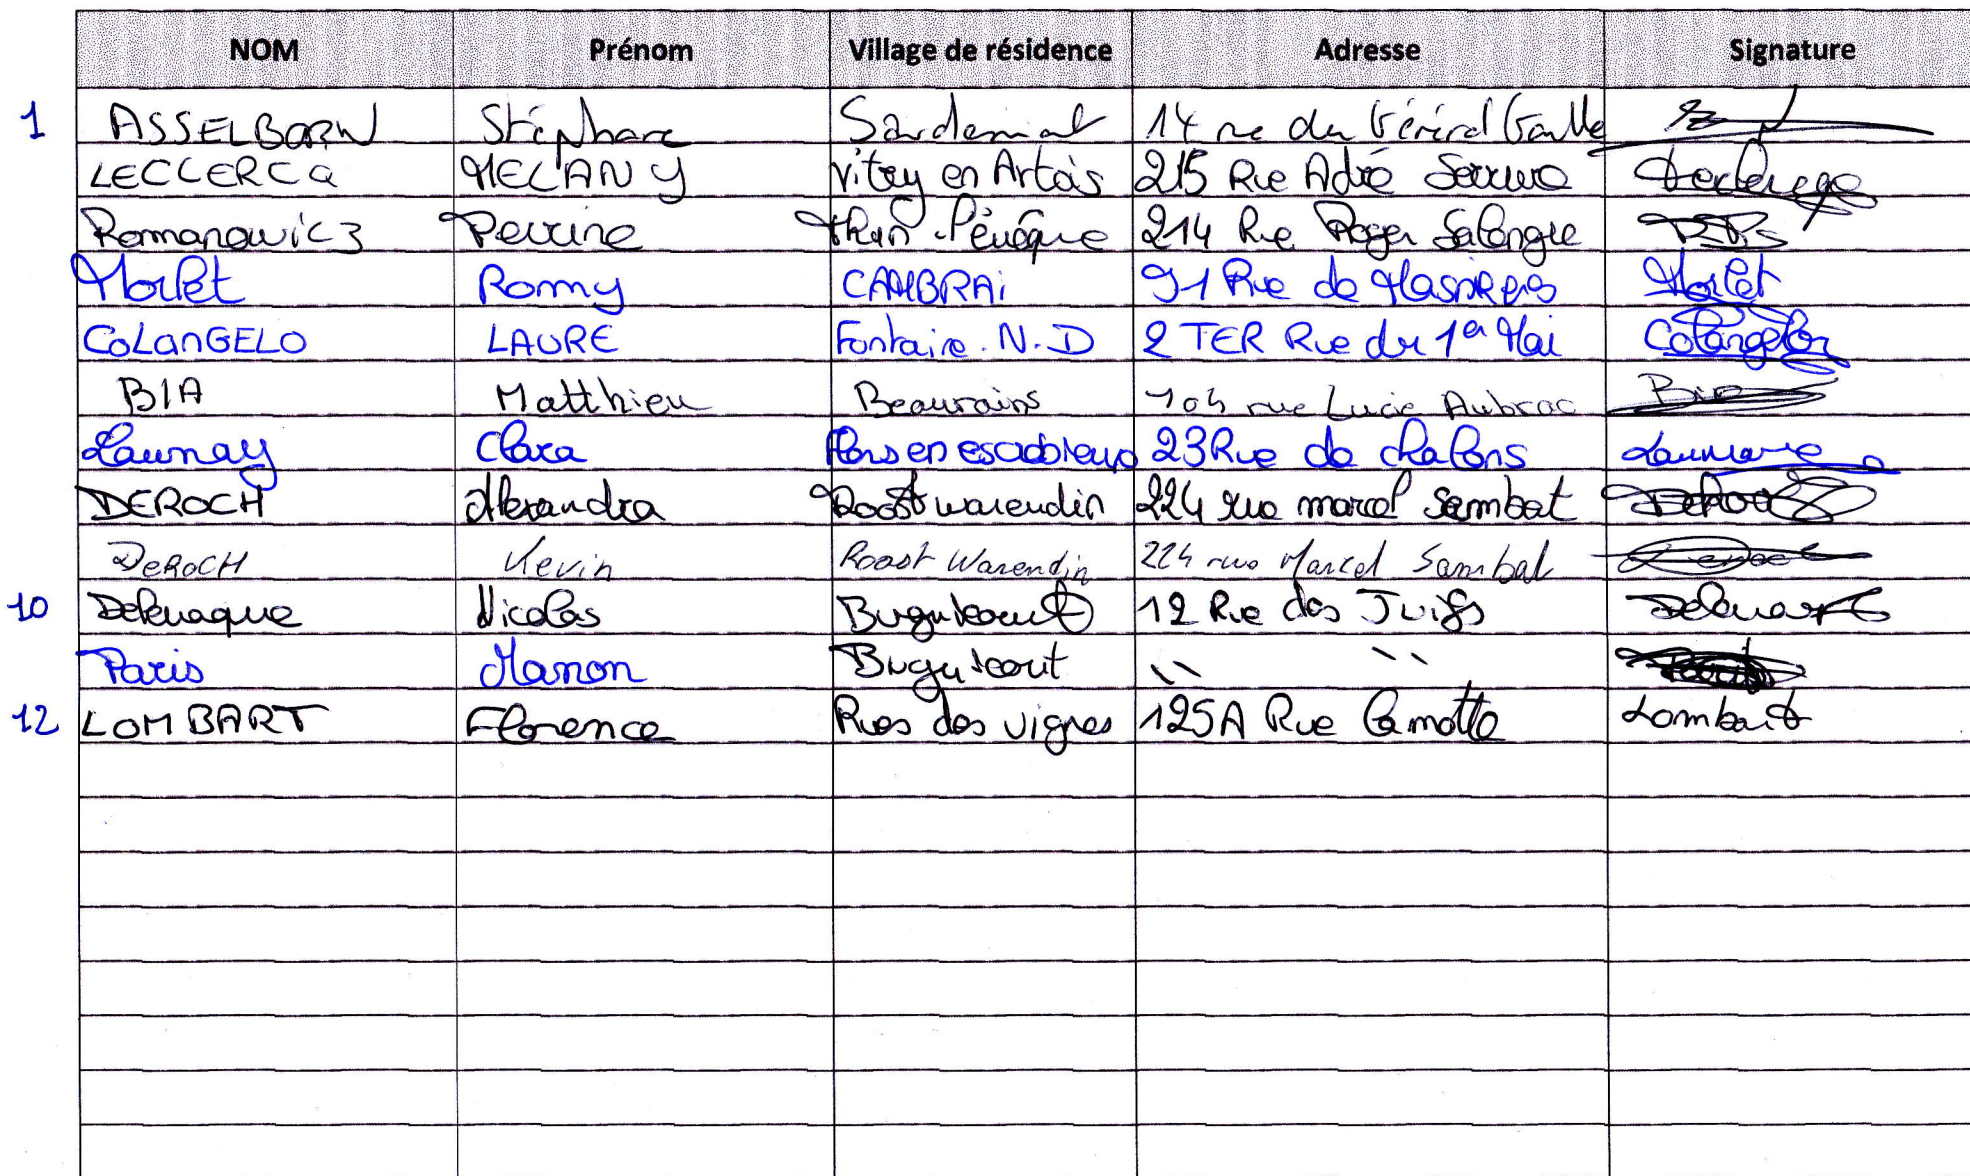 NOM Prénom Village de résidence Adresse Signature
1 ASSELBORN Stéphane 14 rue du Général Gaulle
LECLERCQ MELANY Vitry en Artois 215 Rue Leclercq
Romanowicz Perrine 214 Rue Roger Salengro
Morlet Romy CAMBRAi 91 Rue de Masnières Morlet
COLANGELO LAURE Fontaine. N. D 2 TER Rue du 1er Mai Colangelo
BIA Matthieu Beaurains 104 rue Lucie Aubrac Bia
Launay Clara Flers en escrebieux 23 Rue de chalons
DEROCH Alexandra Roost warendin 224 rue marcel Sembat Deroch
DEROCH Kevin Roost Warendin 224 rue Marcel Sembat
10 Nicolas 12 Rue des Juifs
Paris Manon " "
12 LOMBART Florence Rues des vignes 125A Rue Lamotte Lombart